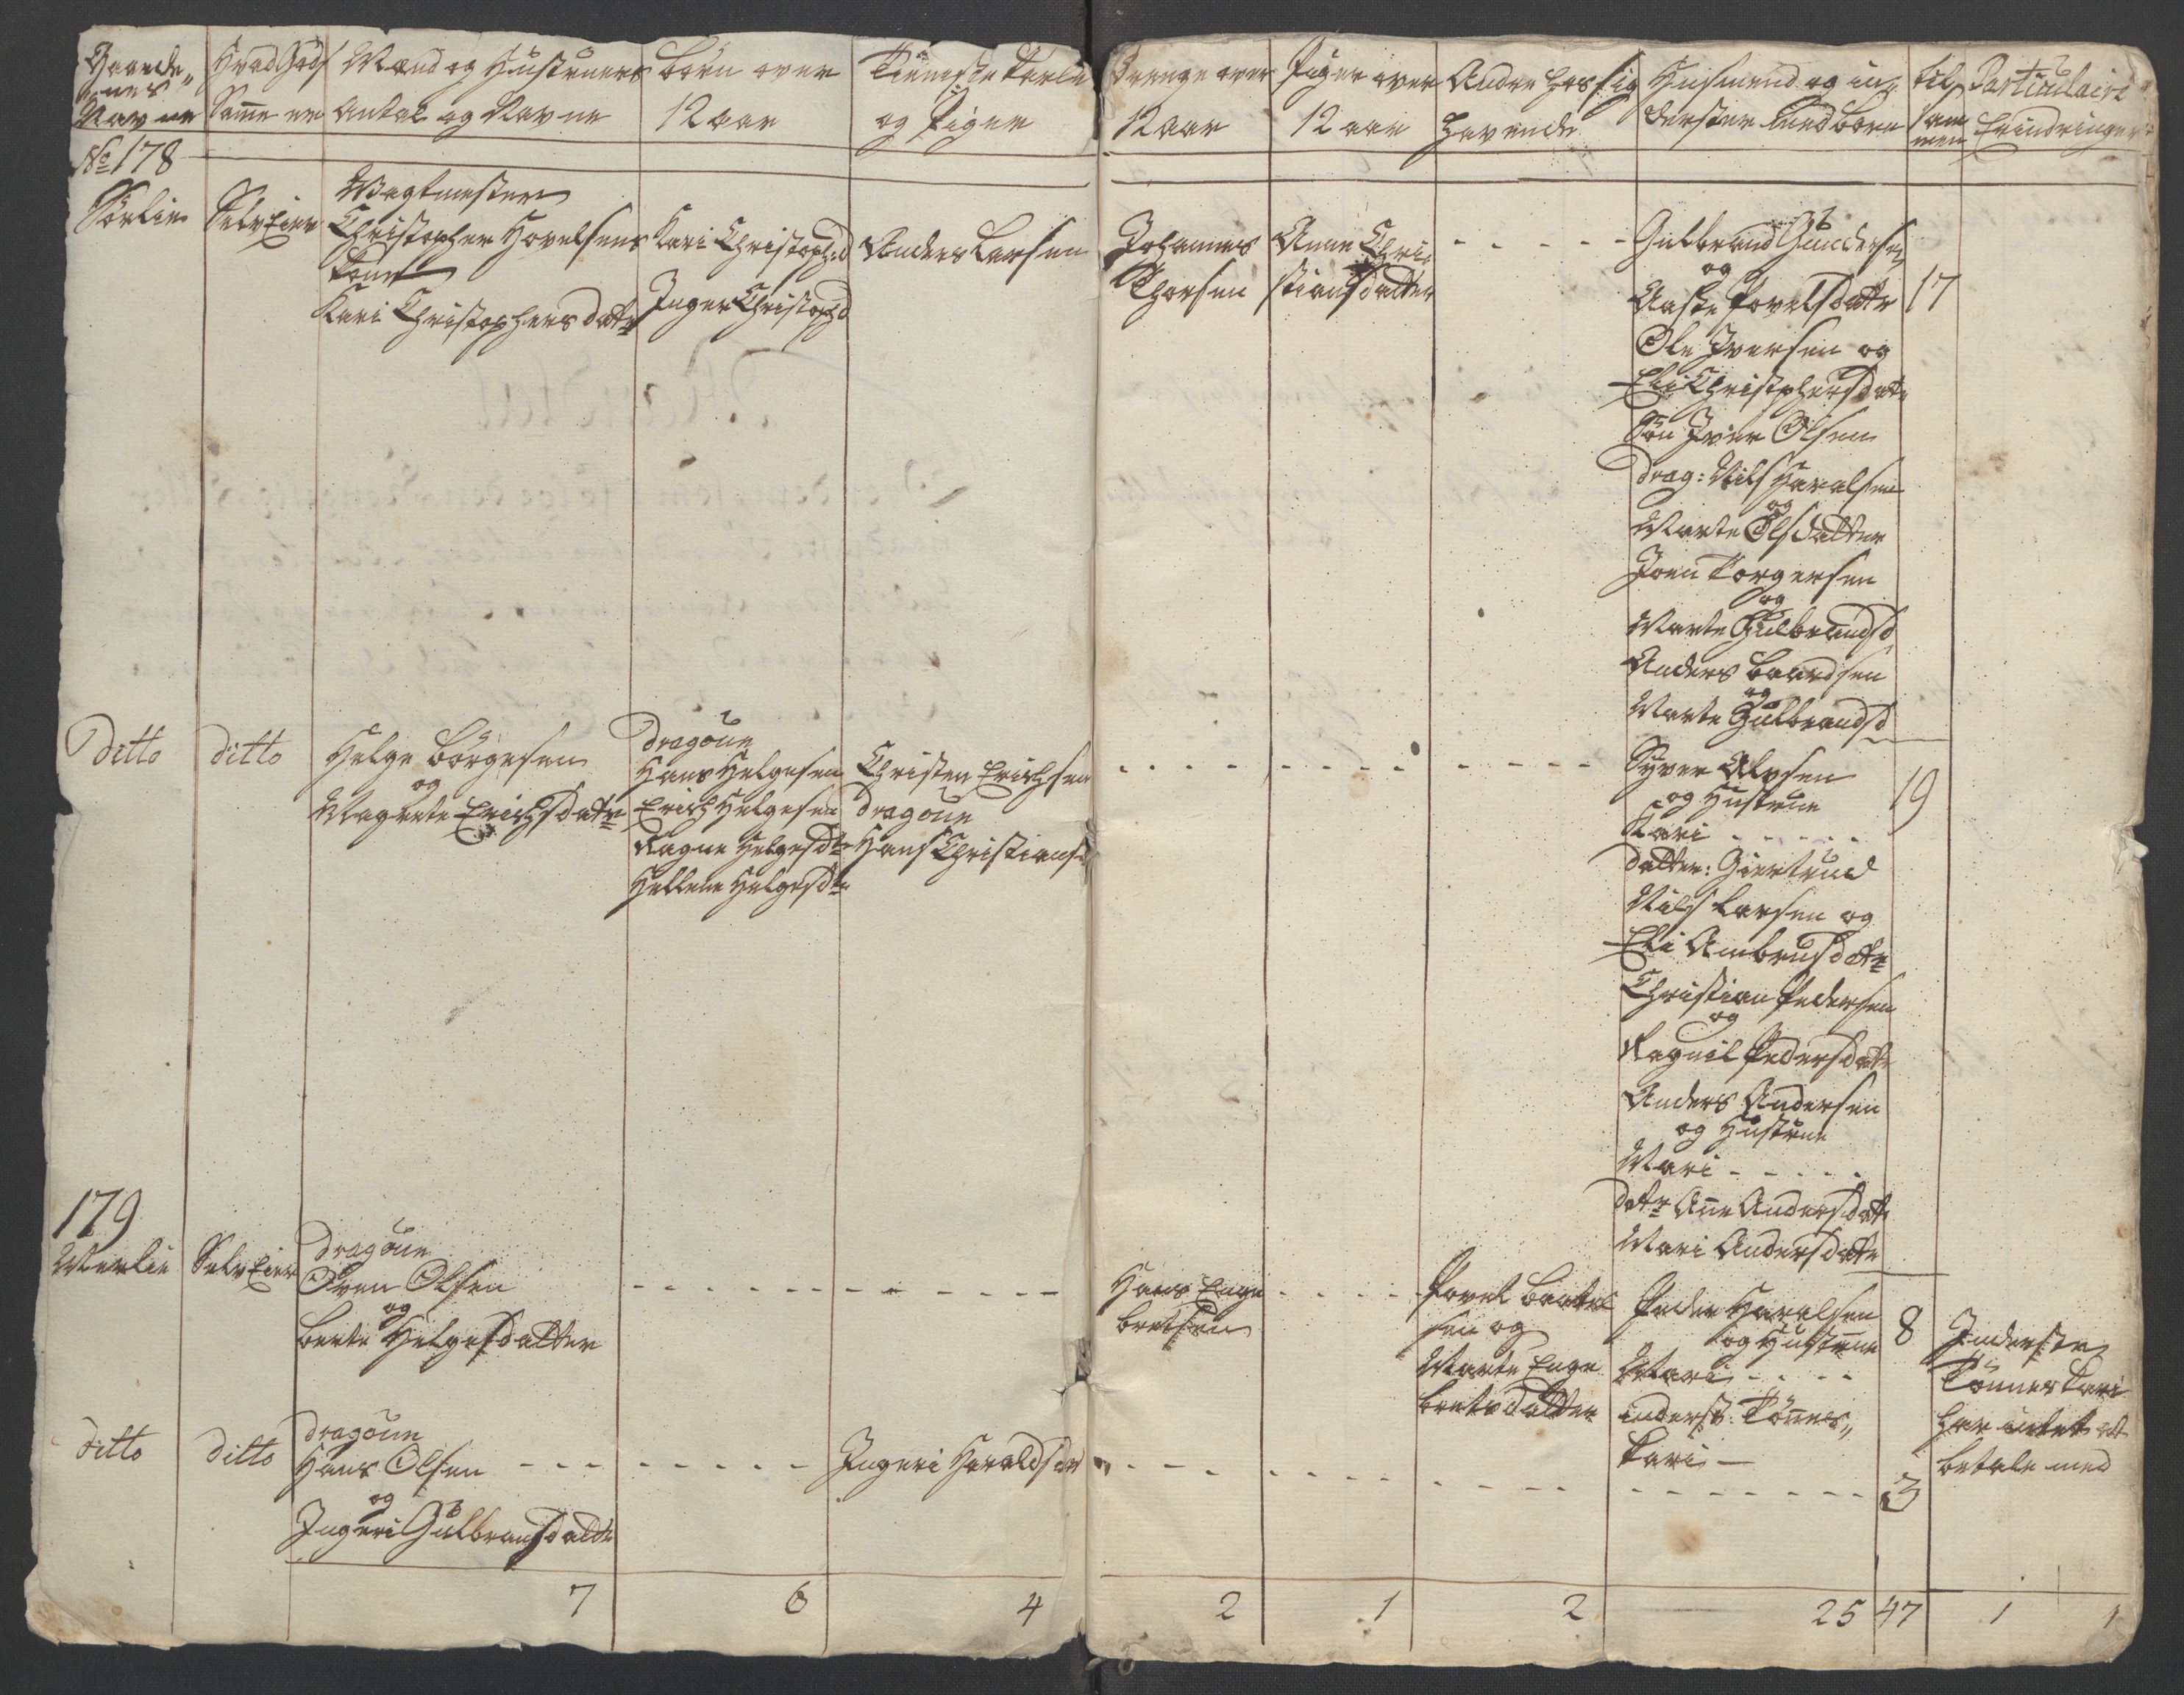 Gaarde„
nes
Navne
Hvad Gods
Samme er
Mænd og Hustruers
Antal og Navne
Börn over
12 aar
Tieneste Karle
og Piger
Drenge over
12 aar
Piger over
12 aar
Andre hos sig
havende
Husmend og in„
derster med börn
til
sam
men
Particulaire
Erindringer
No 178
Sörlie
SelvEier
Wagtmester
Christopher Hovelsens
Kone
Kari Christophersdatr
Kari Christoph:d
Inger Christophd
Anders Larsen
Johannes
Thorsen
Anne Chri„
stiansdatter
Gulbrand Gundersen
og
Aaste Povelsdatr
Ole Iversen og
Eli Christophersdatr
Sön Iver Olsen
Drag: Nils Haralsen
og
Marte Olsdatter
Joen Torgersen
og
Marte Gulbrandsd
Anders Baardsen
og
Marte Gulbrandsd
17
Ditto
ditto
Helge Börgesen
og
Magrete Erichsdatr
Dragoun
Hans Helgesen
Erich Helgesen
Ragne Helgesdr
Hellene Helgesdr
Christen Erichsen
Dragoun
Hans Christians
Syver Alvsen
og Hustrue
Kari
datter: Giertrud
Nils Larsen og
Eli Ambrusdatr
Christian Pedersen
og
Ragnil Pedersdatr
Anders Andersen
og Hustrue
Mari
datr Ane Andersdatr
Mari Andersdatr
19
179
Merlie
SelvEier
Dragoun
Sven Olsen
og
Berte Helgesdatter
Hans Enge
bretsen
Povel Bartel
sen og
Marte Enge
bretsdatter
Peder Haralsen
og Hustrue
Mari
inderst: Tönnes„
Kari
8
Inderste
Tönnes Kari
har intet at
betale med
ditto
ditto
Dragoun
Hans Olsen
og
Ingeri Gulbransdattr
Ingeri Haraldsdr
3
7 6 4 2 1 2 25 47 1 1